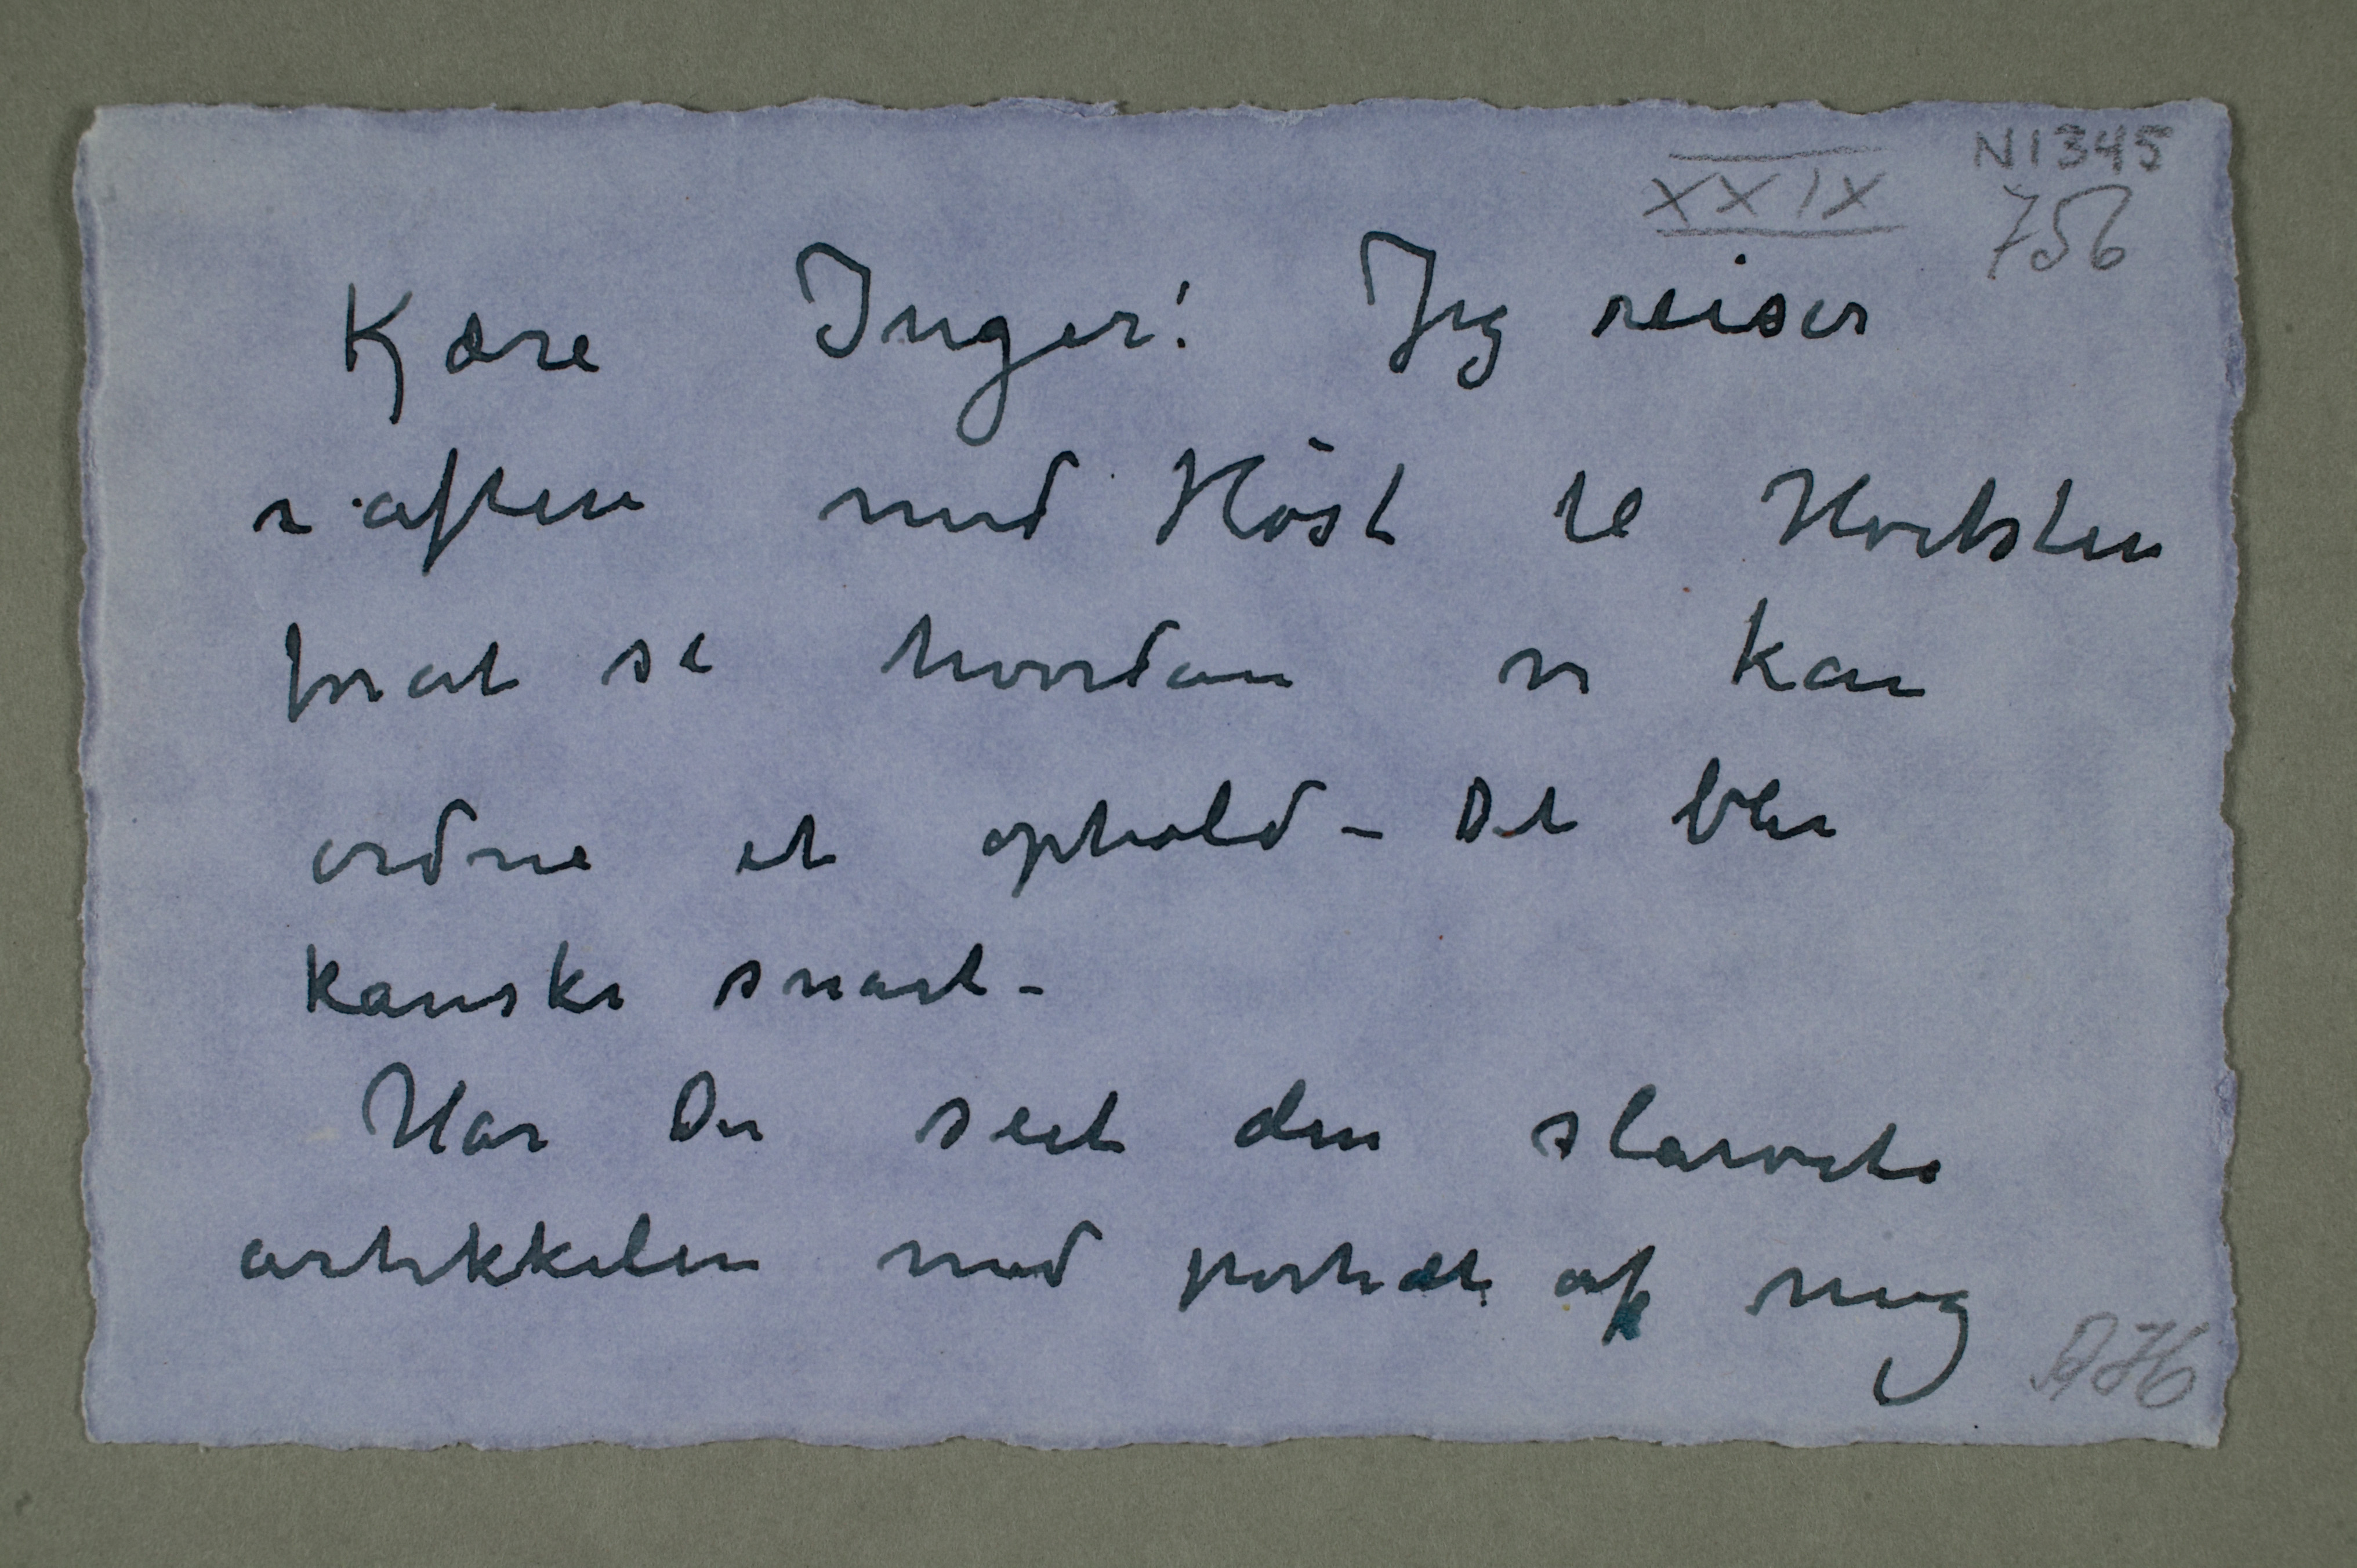 XXIX N1345
756
Kjære Inger! Jeg reiser
i aften med Höst til Hvitsten
forat se hvordan vi kan
ordne et ophold – Det blir
kanske snart –
Har Du seet den slarvete
artikkelen med portræt af mig